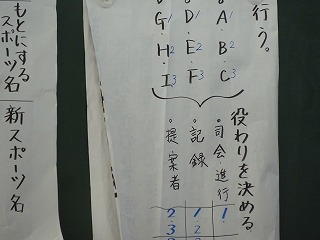 行う。
・A1 ・B2 ・C3
・D1 ・E2 ・F3
・G1 ・H2 ・I3
役わりを決める
・司会・進行 1
・記録 1 2
・提案者 2 3
もとにする
スポーツ名
新スポーツ名